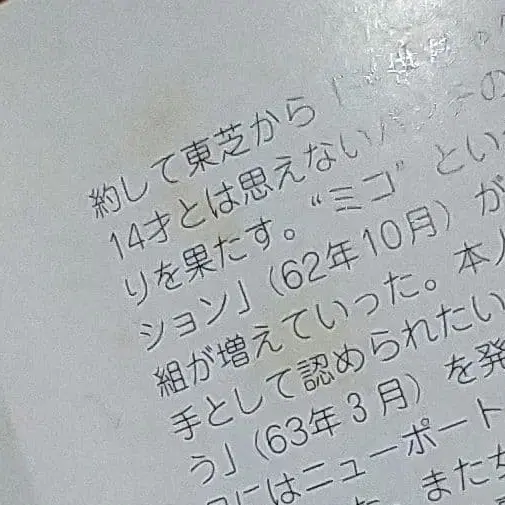 約して東芝から「
14才とは思えない
りを果たす。“ミコ”とい
ション」(62年10月)が
組が増えていった。本人
手として認められたい
う」(63年3月)を発
にはニューポート
また